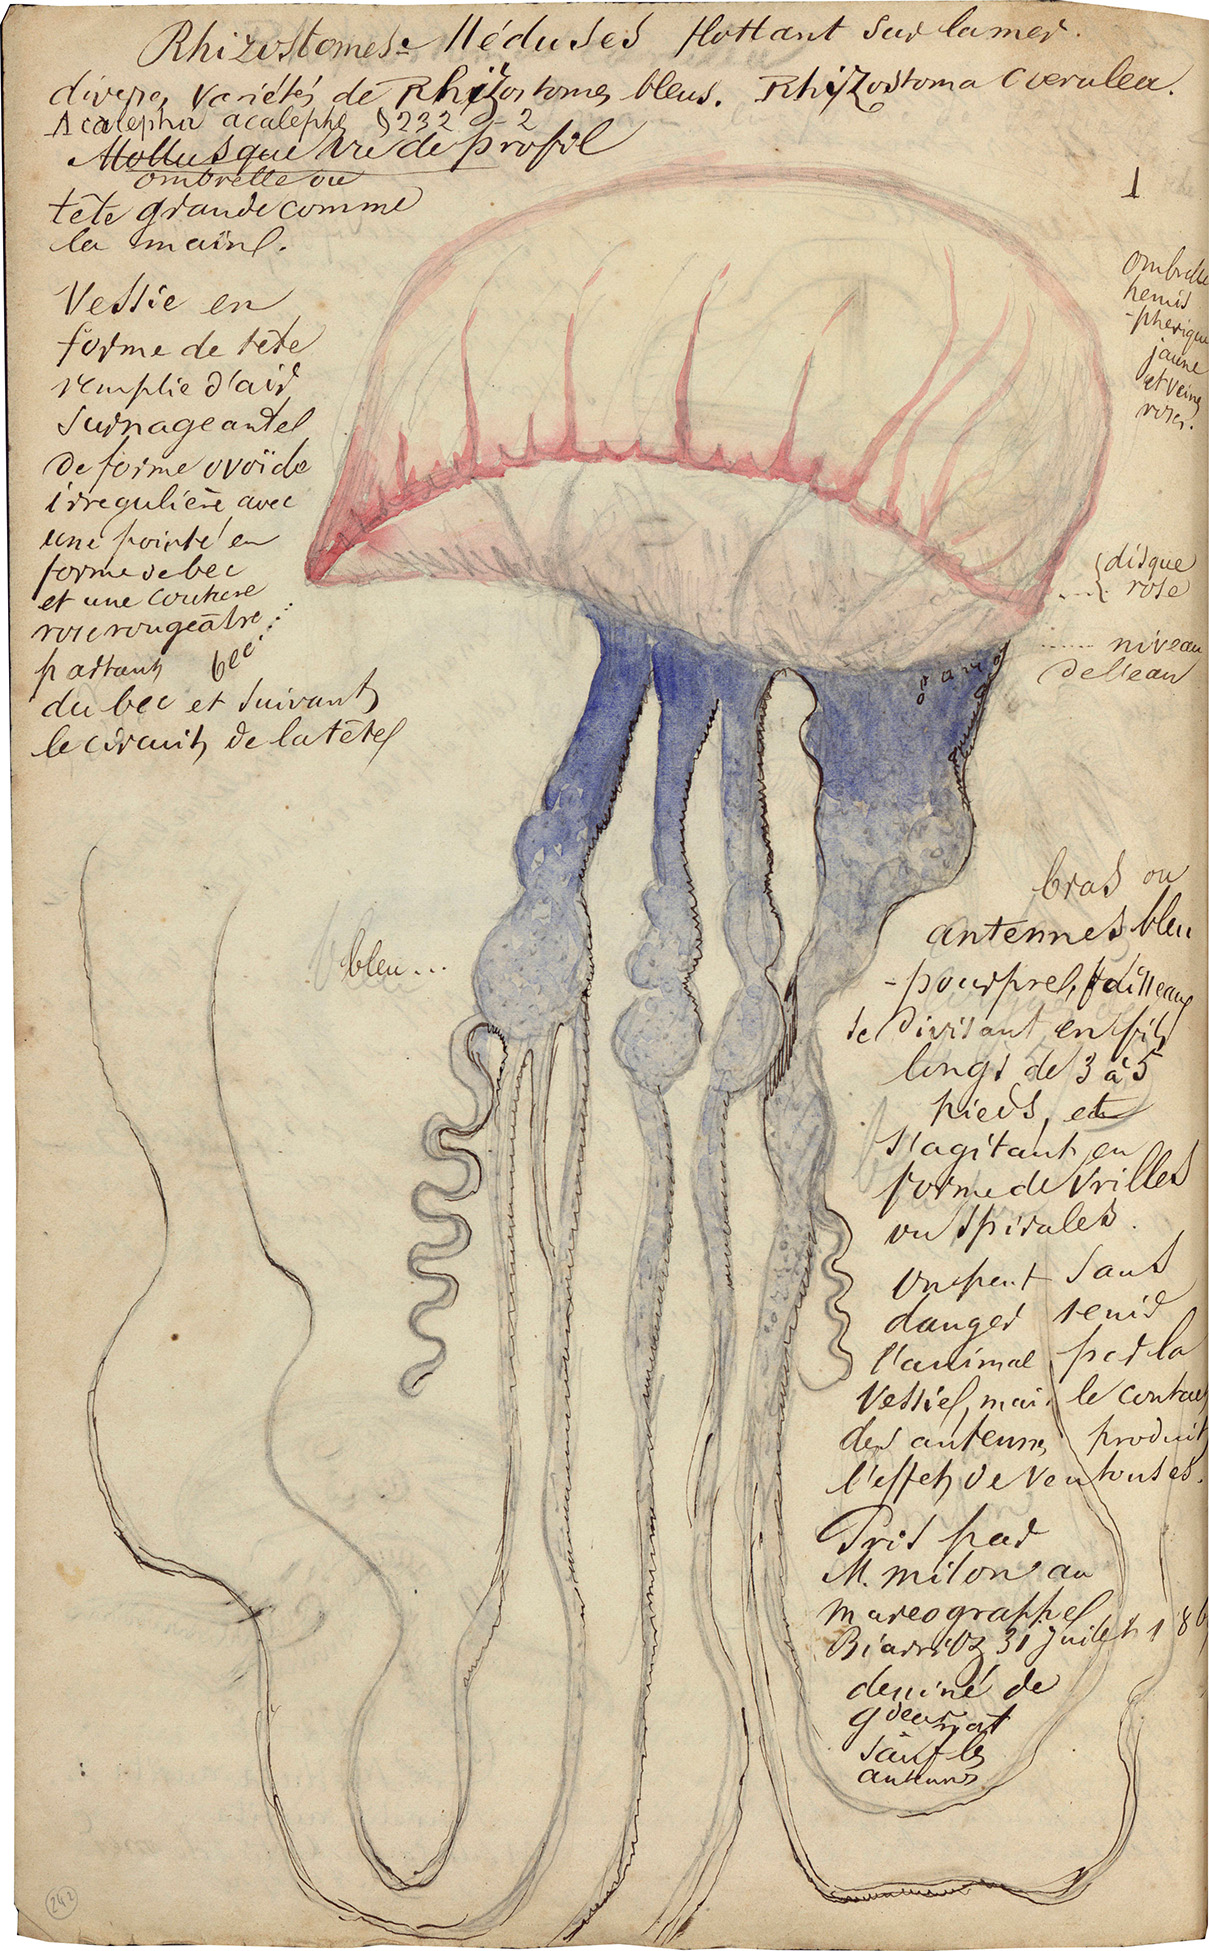 Rhizostomes = Méduses flottant sur la mer.
divers, variétés de Rhizostomes bleus. Rhizostoma Coerulea.
Acalepha acalephe § 232 - 2
Mollusque vu de profil
ombrelle ou
tête grande comme
la main.
1
ombrelle
hemis
-pherique
jaune
et veine
roses.
Vessie en
forme de tête
remplie d'air
surnageante
de forme ovoïde
irregulière avec
une pointe en
forme de bec
et une couture
rose rougeâtre
partant bec
du bec et suivant
le circuit de la tête
disque
rose
niveau
de l'eau
bleu ...
bras ou
antennes bleu
-pourpre, faisseaux
se divisant en fils
longs de 3 à 5
pieds, et
s'agitant en
forme de vrilles
ou spirales.
On peut sans
danger tenir
l'animal par la
vessie, mais le contact
des antennes produit
l'effet de ventouses.
Pris par
M. milon au
mareographe
Biarritz 31 juillet 18
dessiné de
grandeur nat
sauf les
antennes
242